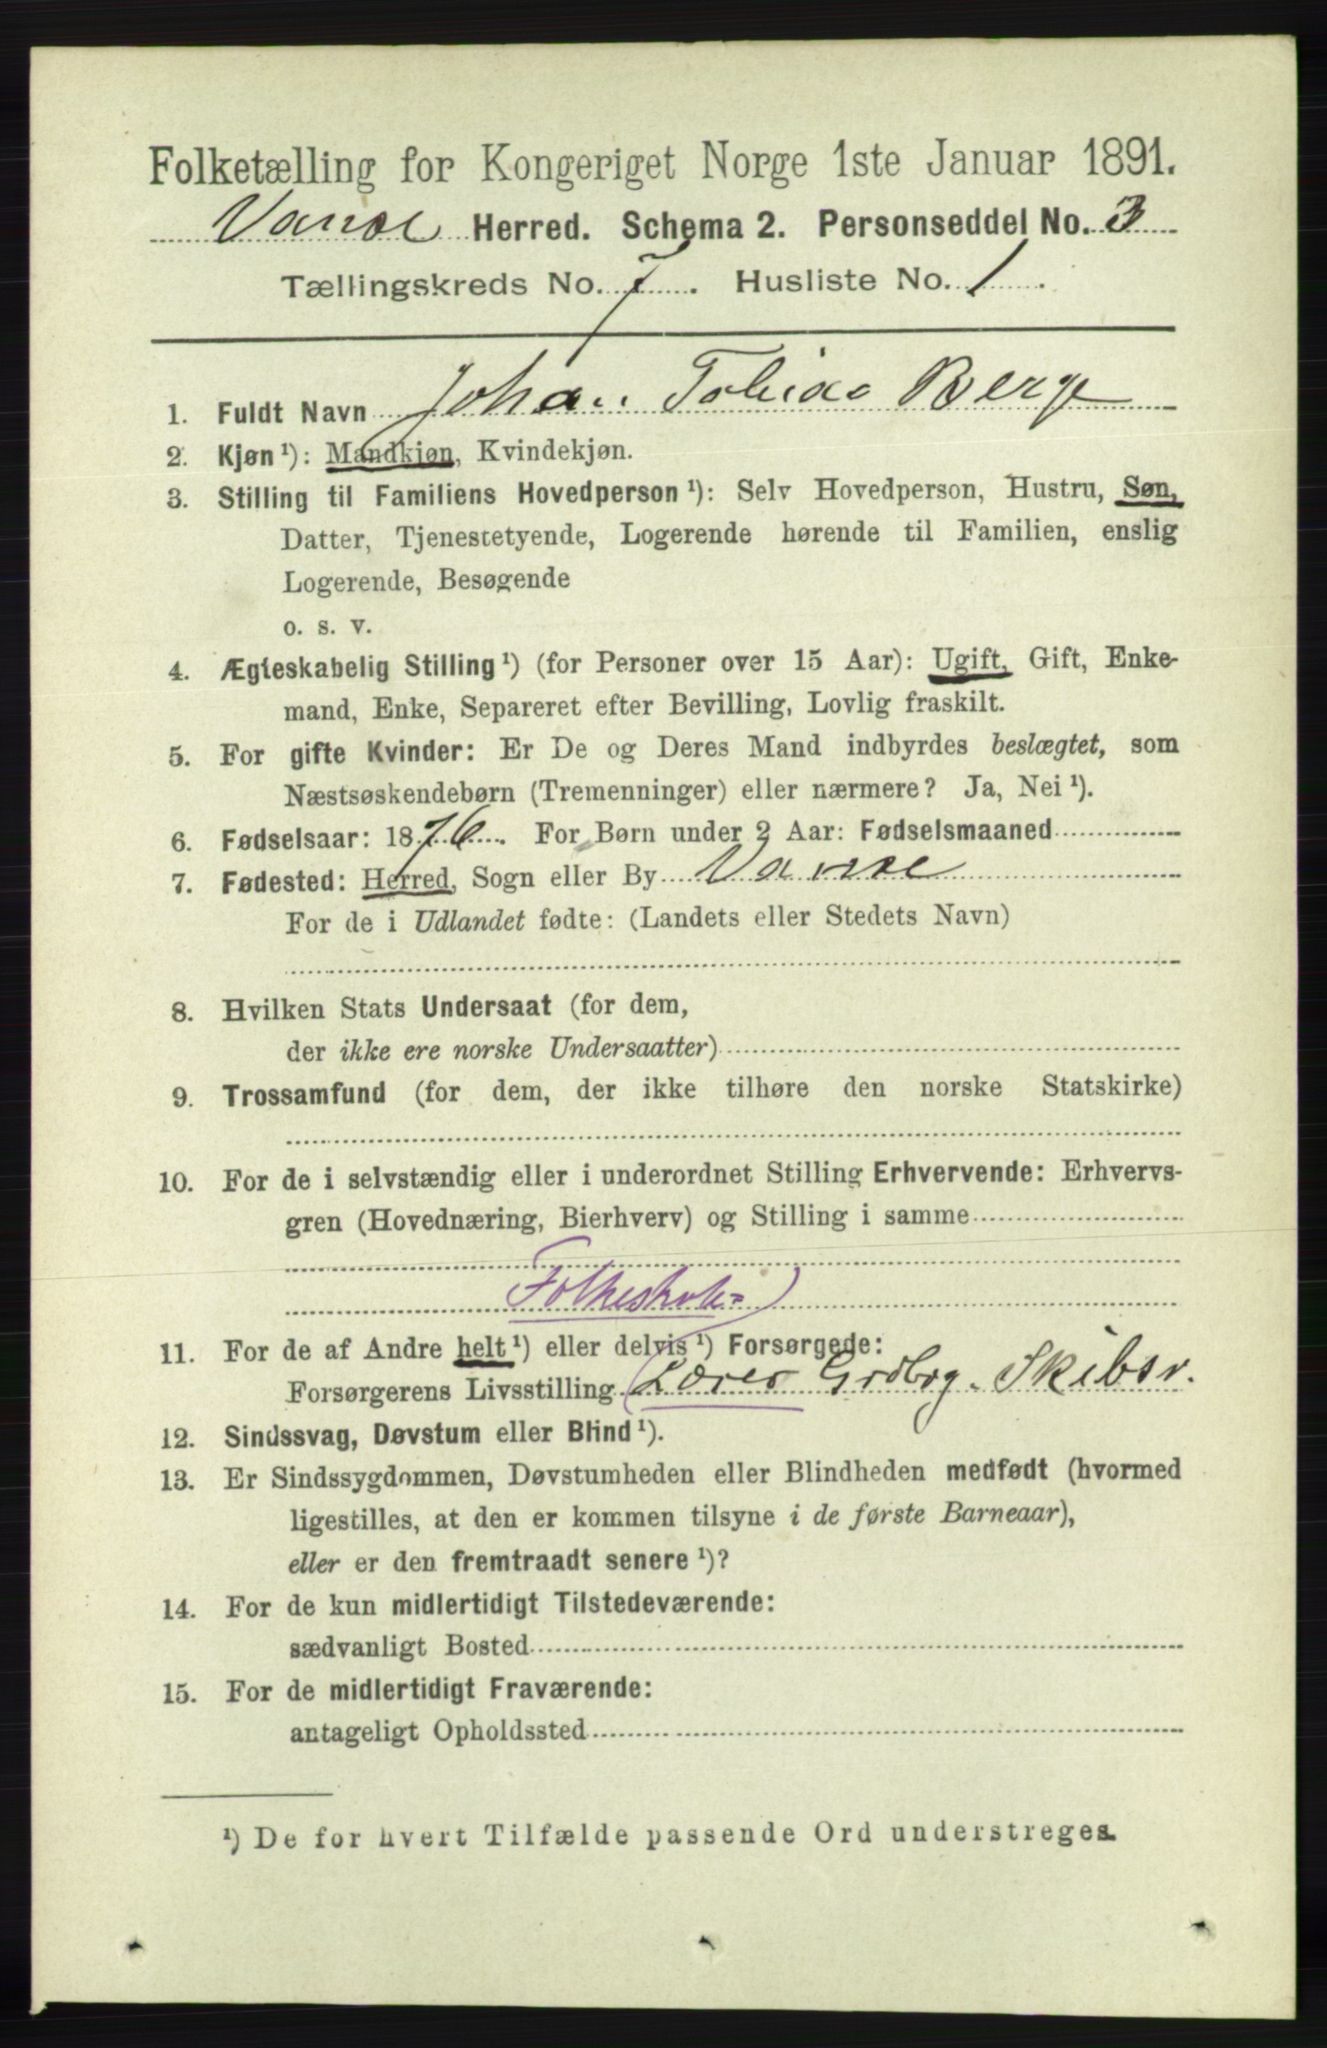 Folketælling for Kongeriget Norge 1ste Januar 1891.
Vanse Herred. Schema 2. Personseddel No. 3
Tællingskreds No. 7. Husliste No. 1.
1. Fuldt Navn Johan Tobias Berge
2. Kjøn ¹): Mandkjøn, Kvindekjøn.
3. Stilling til Familiens Hovedperson ¹): Selv Hovedperson, Hustru, Søn,
Datter, Tjenestetyende, Logerende hørende til Familien, enslig
Logerende, Besøgende
o. s. v.
4. Ægteskabelig Stilling ¹) (for Personer over 15 Aar): Ugift, Gift, Enke-
mand, Enke, Separeret efter Bevilling, Lovlig fraskilt.
5. For gifte Kvinder: Er De og Deres Mand indbyrdes beslægtet, som
Næstsøskendebørn (Tremenninger) eller nærmere? Ja, Nei ¹).
6. Fødselsaar: 1876. For Børn under 2 Aar: Fødselsmaaned
7. Fødested: Herred, Sogn eller By Vanse
For de i Udlandet fødte: (Landets eller Stedets Navn)
8. Hvilken Stats Undersaat (for dem,
der ikke ere norske Undersaatter)
9. Trossamfund (for dem, der ikke tilhøre den norske Statskirke)
10. For de i selvstændig eller i underordnet Stilling Erhvervende: Erhvervs-
gren (Hovednæring, Bierhverv) og Stilling i samme
Folkeskole=
11. For de af Andre helt ¹) eller delvis ¹) Forsørgede:
Forsørgerens Livsstilling Lærer Grdbrg. Skibsr.
12. Sindssvag, Døvstum eller Blind ¹).
13. Er Sindssygdommen, Døvstumheden eller Blindheden medfødt (hvormed
ligestilles, at den er kommen tilsyne i de første Barneaar),
eller er den fremtraadt senere ¹)?
14. For de kun midlertidigt Tilstedeværende:
sædvanligt Bosted
15. For de midlertidigt Fraværende:
antageligt Opholdssted
¹) De for hvert Tilfælde passende Ord understreges.